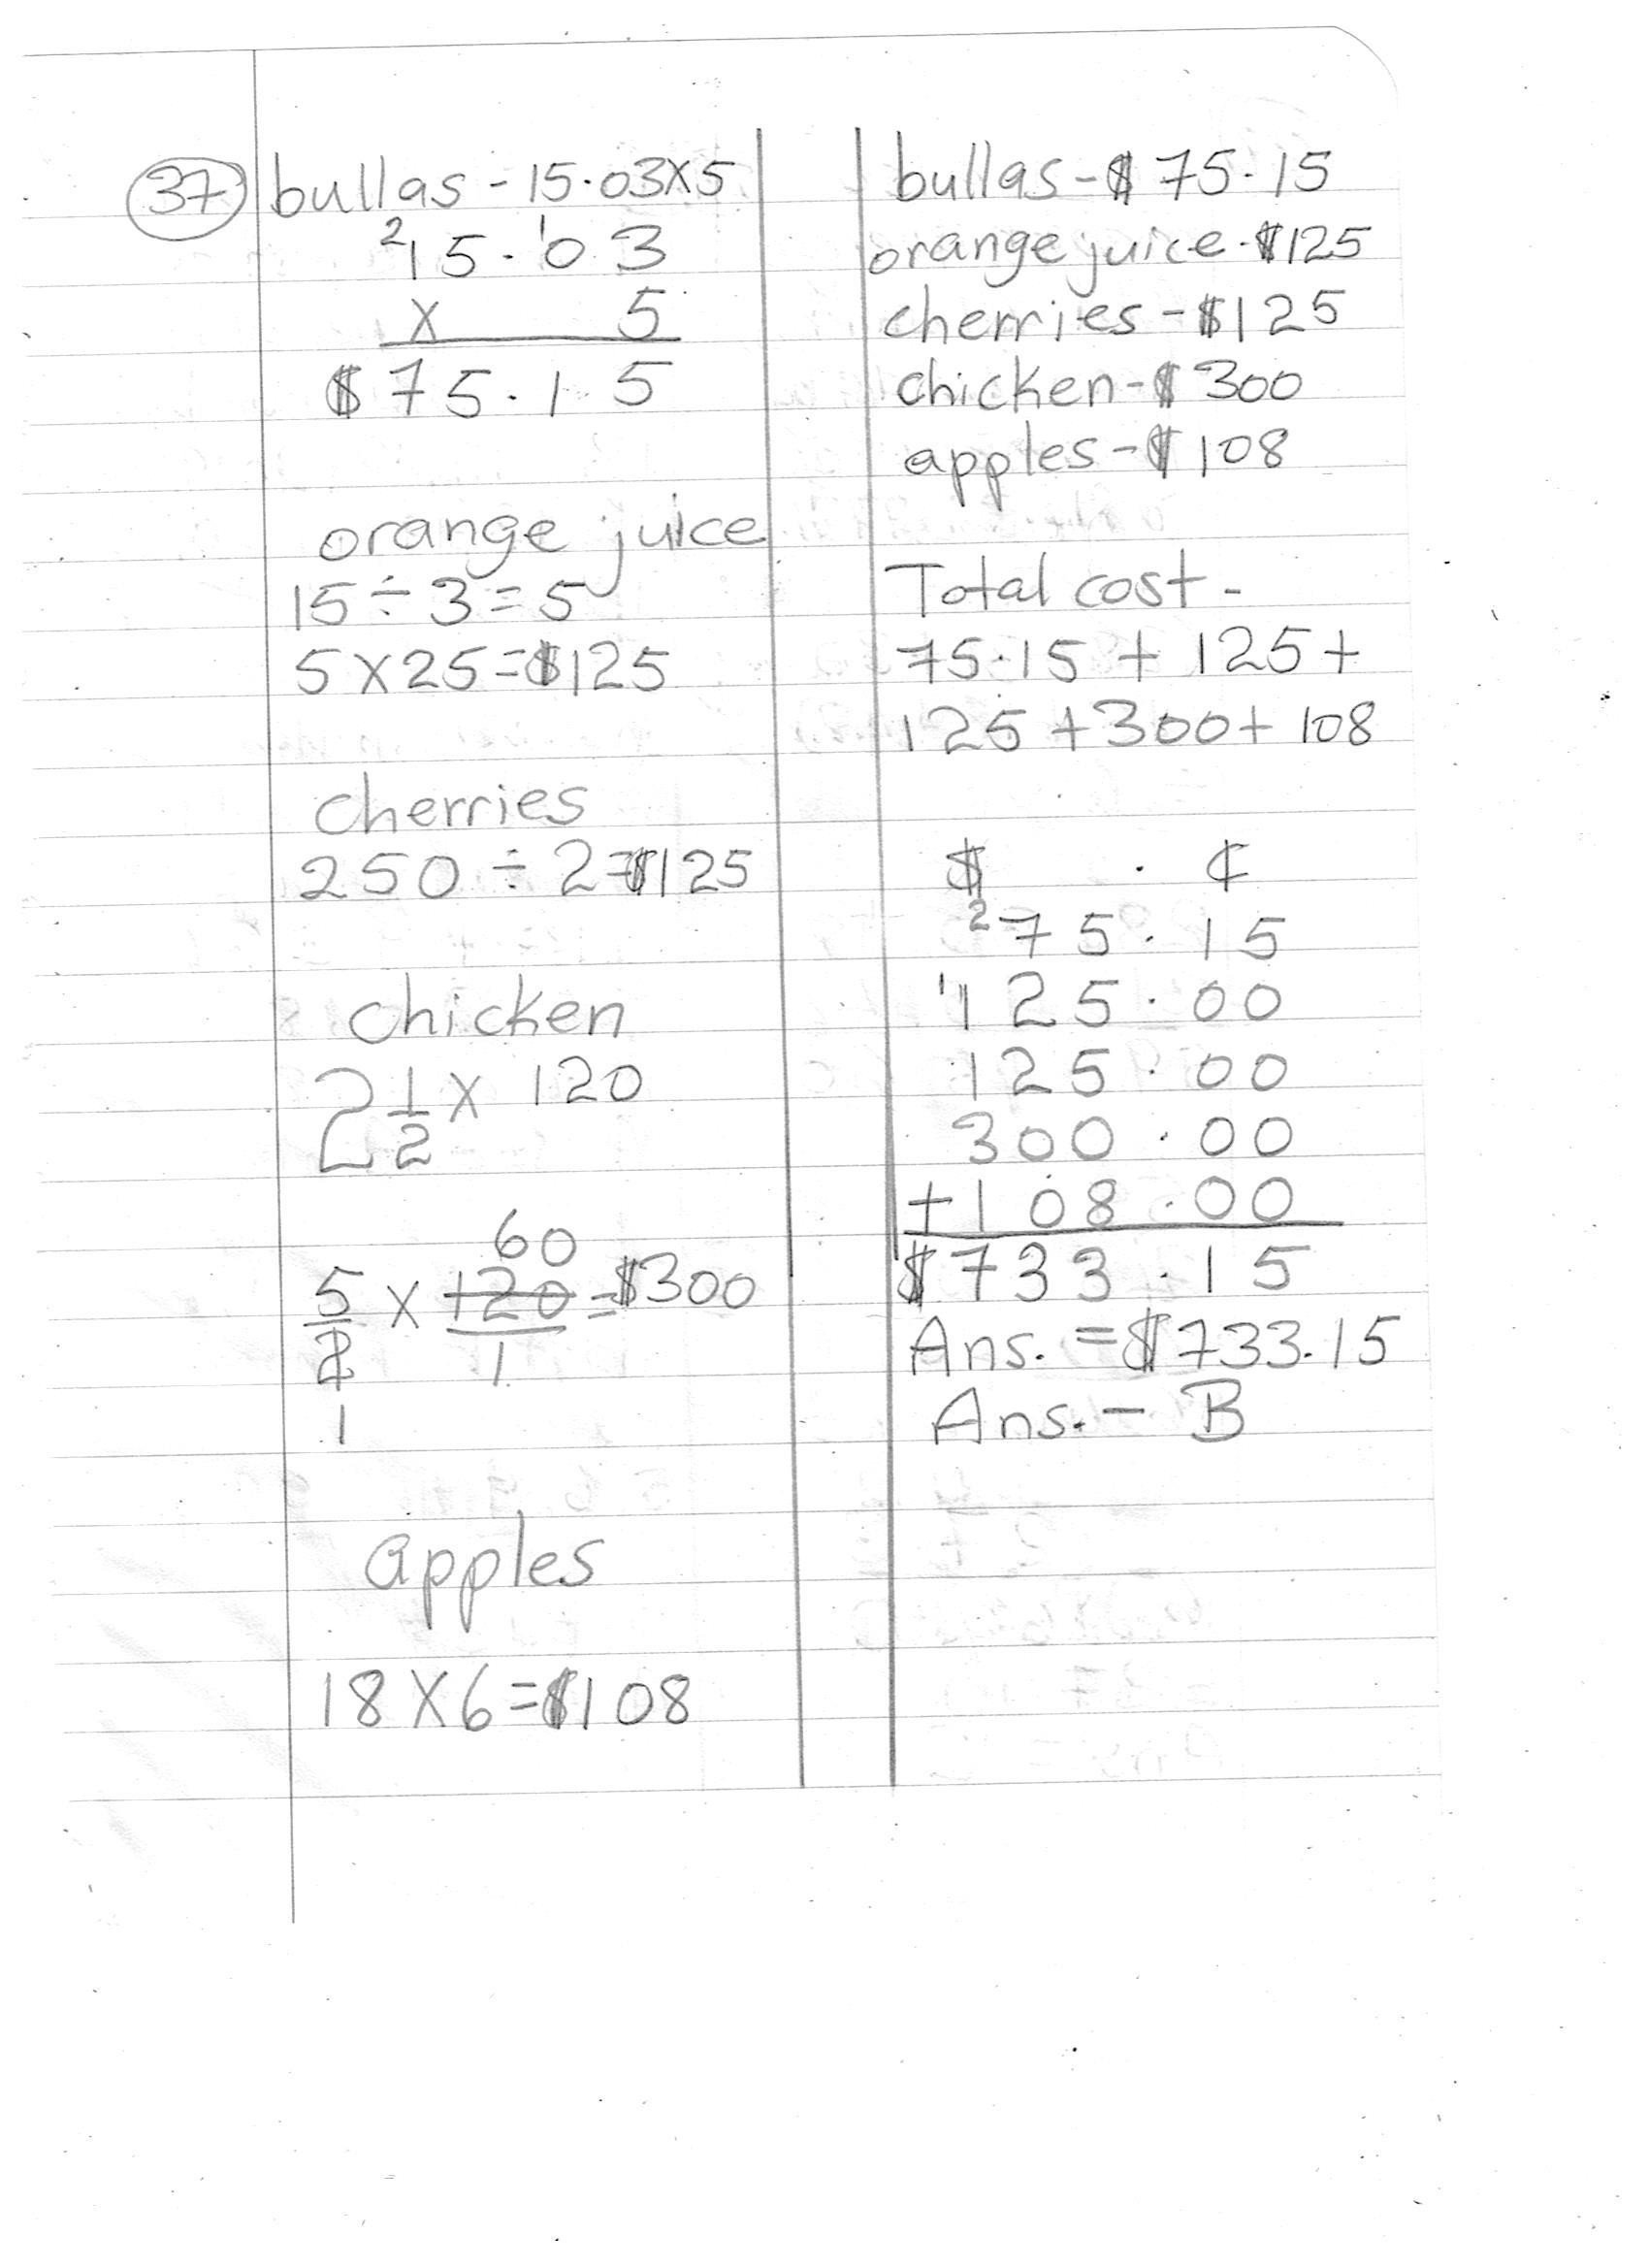 37 bullas - 15.03x5
²15.¹03
x 5
$75.15
orange juice
15÷3=5
5x25=$125
cherries
250÷2=$125
chicken
2 1/2 x 120
60
5/2 x 120/1 = $300
1
apples
18x6=$108
bullas-$75.15
orange juice-$125
cherries-$125
chicken-$300
apples-$108
Total cost-
75.15 + 125+
125+300+ 108
$ . ¢
²75.15
¹125.00
125.00
300.00
+108.00
$733.15
Ans. =$733.15
Ans.- B